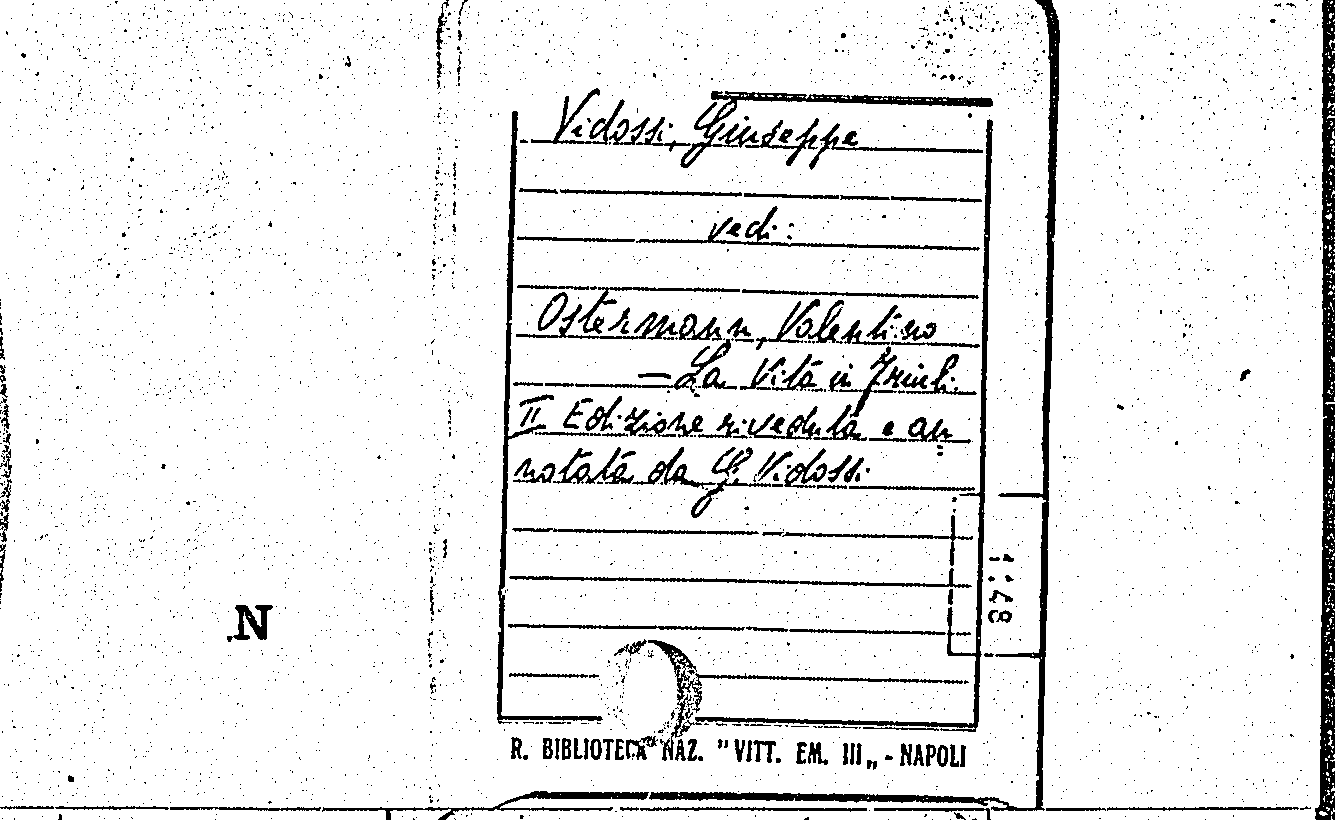 Vidossi, Giuseppe
vedi:
Ostermann, Valentino
— La Vita in Friuli.
II Edizione riveduta e an
notata da G. Vidossi
1:48
N
R. BIBLIOTECA NAZ. "VITT. EM. III„ - NAPOLI